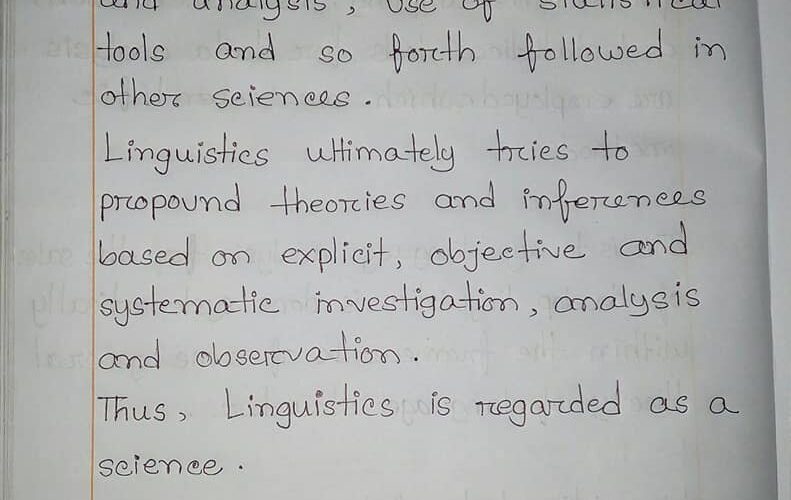 and analysis, use of statistical
tools and so forth followed in
other sciences.
Linguistics ultimately tries to
propound theories and inferences
based on explicit, objective and
systematic investigation, analysis
and observation.
Thus, Linguistics is regarded as a
science.